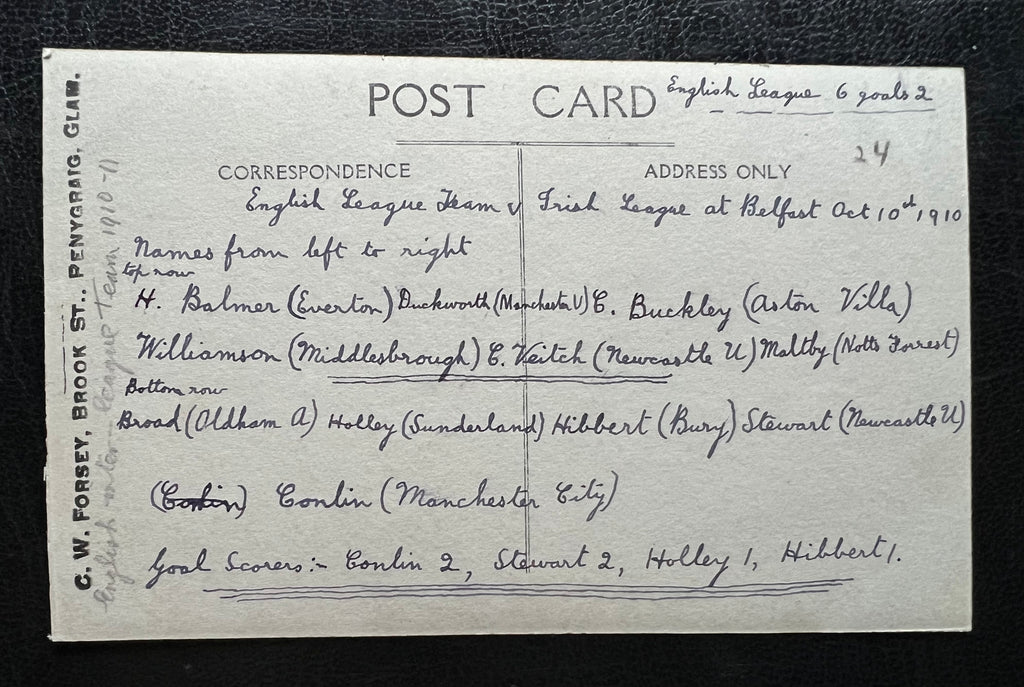 POST CARD
English League 6 goals 2
24
CORRESPONDENCE
ADDRESS ONLY
English League Team v Irish League at Belfast Oct 10th 1910
Names from left to right
top row
H. Balmer (Everton) Duckworth (Manchester U) C. Buckley (Aston Villa)
Williamson (Middlesbrough) C. Veitch (Newcastle U) Maltby (Notts Forrest)
Bottom row
Broad (Oldham A) Holley (Sunderland) Hibbert (Bury) Stewart (Newcastle U)
(Conlin) Conlin (Manchester City)
Goal Scorers:- Conlin 2, Stewart 2, Holley 1, Hibbert 1.
C. W. FORSEY, BROOK ST., PENYGRAIG, GLAM.
English inter-league Team 1910-11